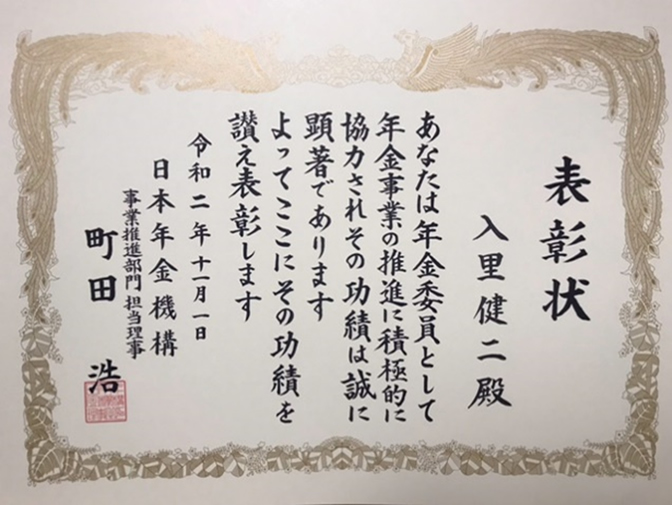 表彰状
入里健二殿
あなたは年金委員として
年金事業の推進に積極的に
協力されその功績は誠に
顕著であります
よってここにその功績を
讃え表彰します
令和二年十一月一日
日本年金機構
事業推進部門 担当理事
町田 浩